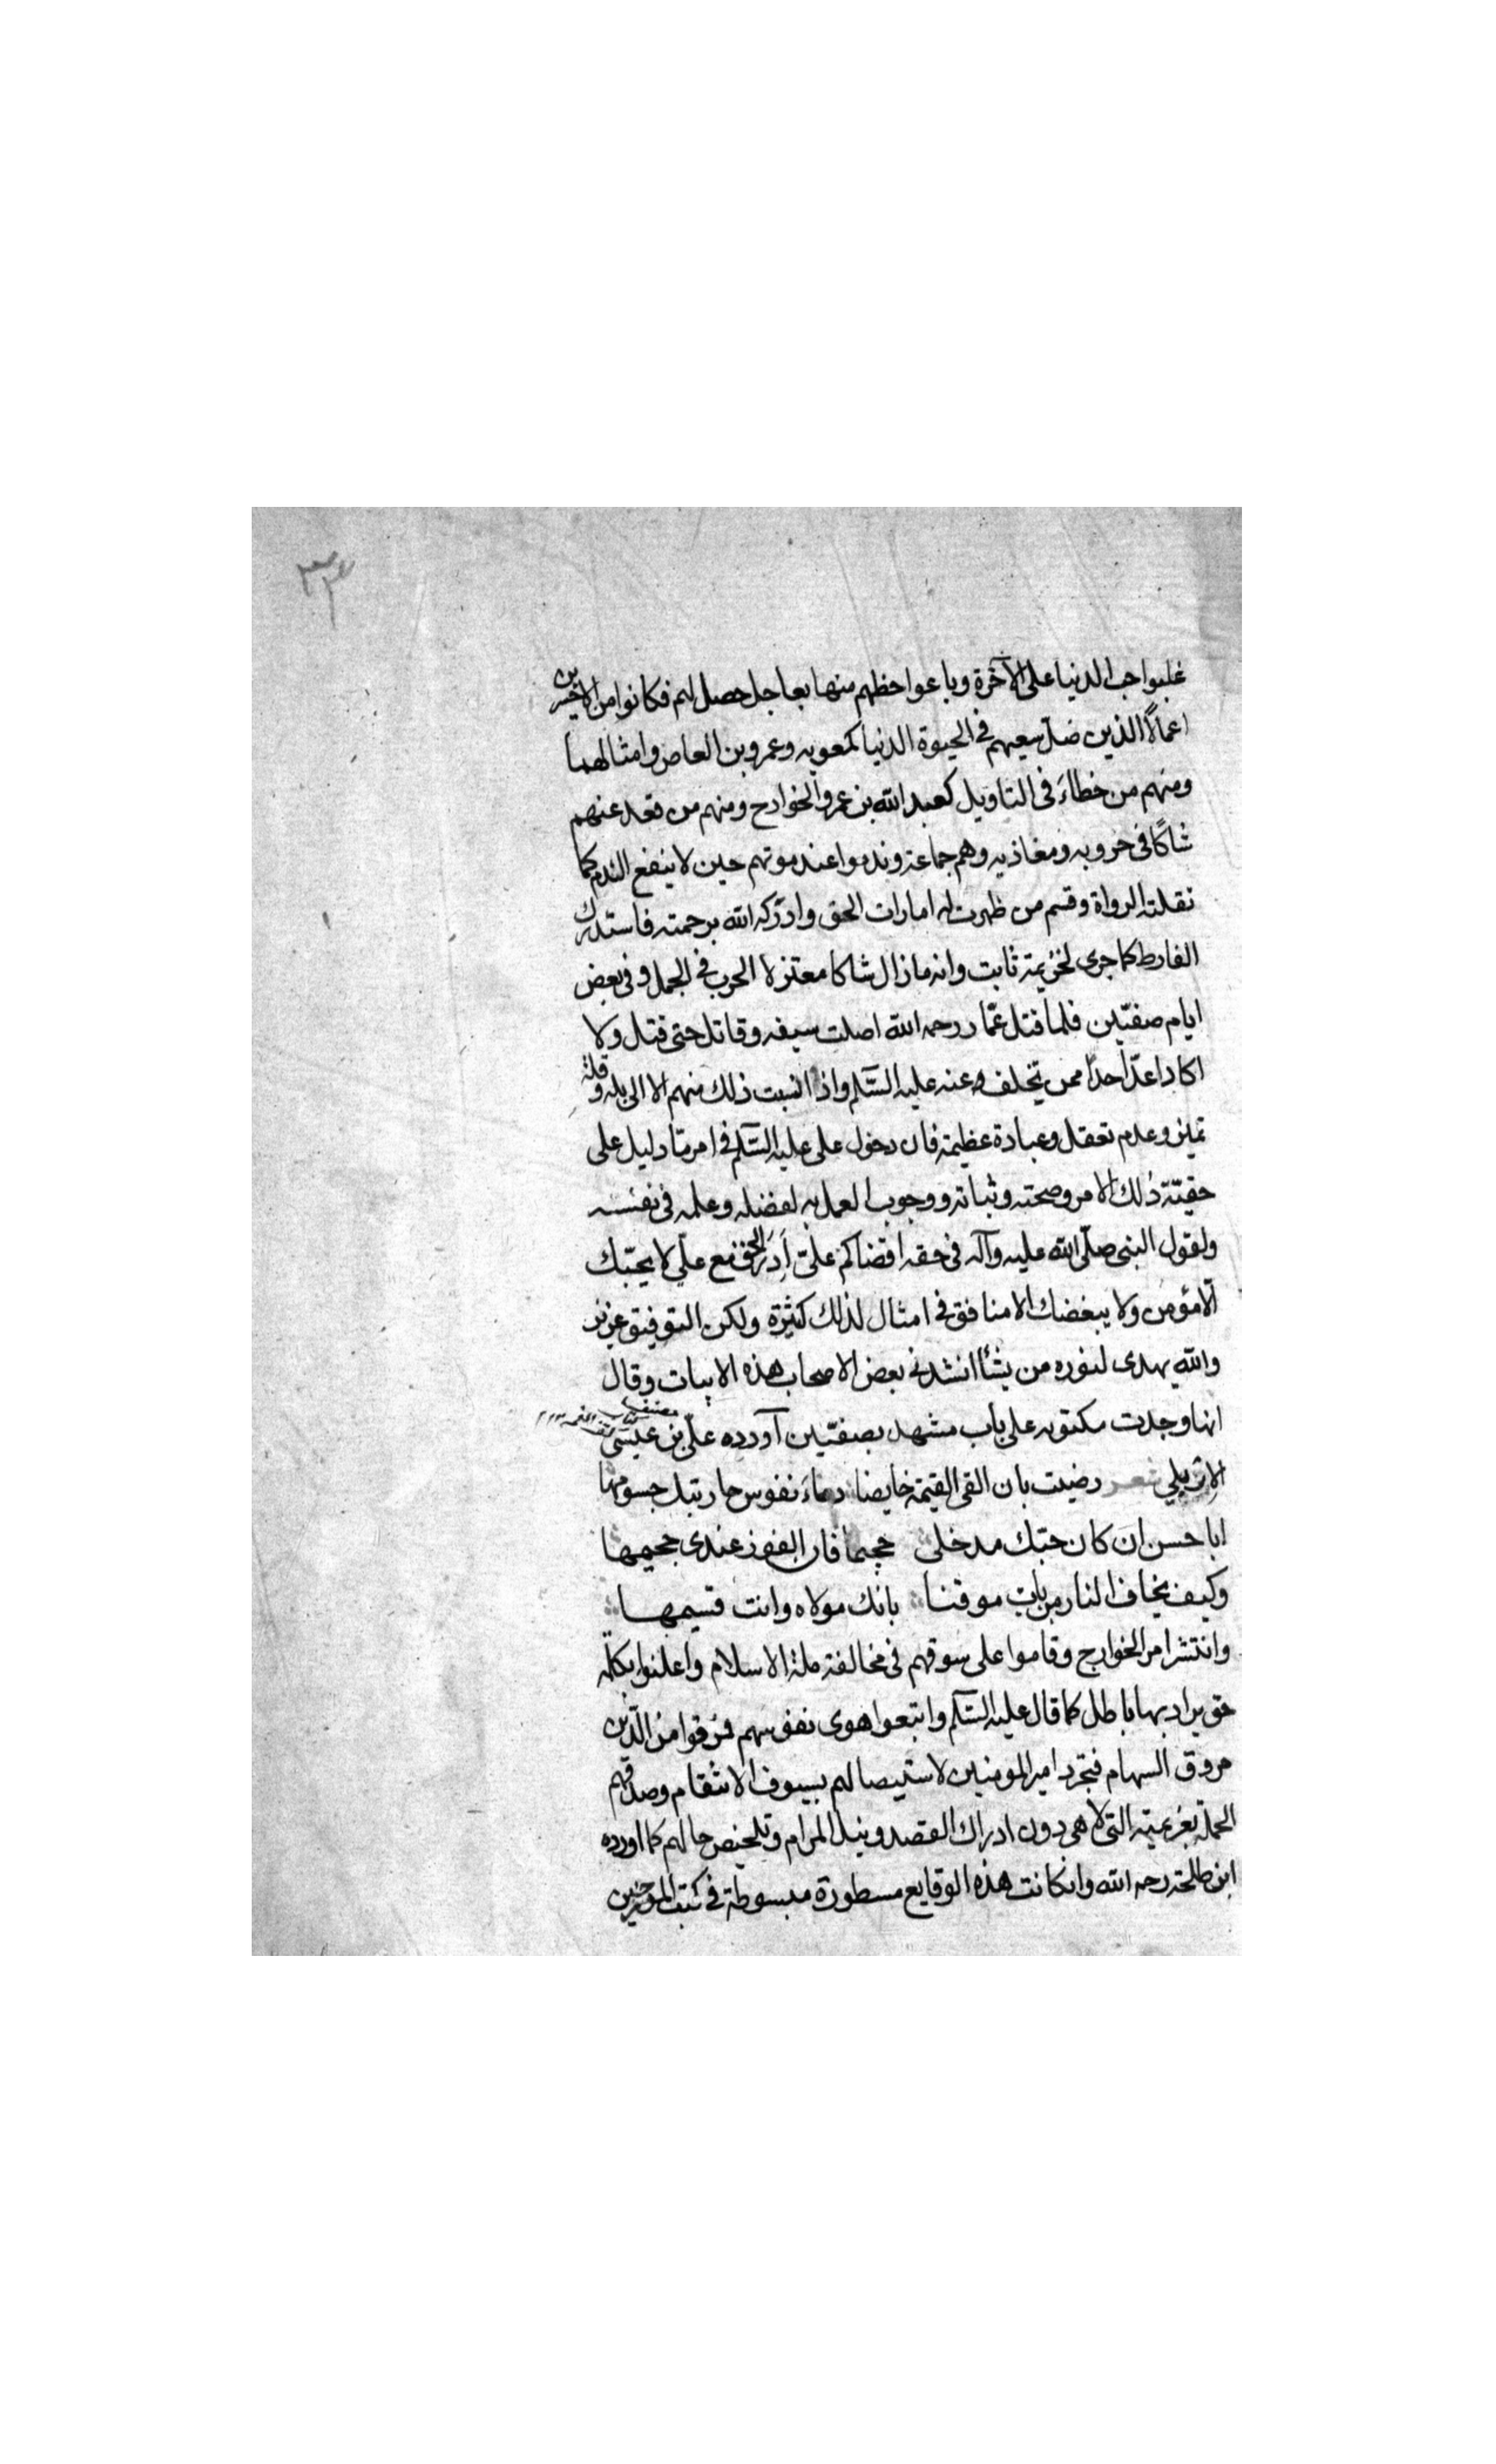 ٣٣
غلبوا حب الدنيا على الآخرة وباعوا حظهم منها بعاجل حصل لهم فكانوا من الاخسرين
اعمالًا الذين ضلّ سعيهم في الحيوة الدنيا كمعويه وعمرو بن العاص وامثالهما
ومنهم من خطاءَ في التاويل كعبد الله بن عمر والخوارج ومنهم من قعد عنهم
شاكًا في حروبه ومغاذيه وهم جماعة وندموا عند موتهم حين لا ينفع الندم كما
نقلته الرواة وقسم من ظهرت له امارات الحق وادركه الله برحمته فاستدرك
الفارط كما جرى لخزيمة ثابت وانه مازال شاكا معتزلا الحرب في الجمل وفي بعض
ايام صفيّن فلما قتل عمّار رحمه الله اصلت سيفه وقاتل حتى قتل ولا
اكاد اعدّ احدًا ممن تخلف عنه عليه السّلم واذا انسبت ذلك منهم الا الى بله وقلة
تميز وعدم تعقل وعبادة عظيمة فان دخول على عليه السّلم في امر مّا دليل على
حقيّة ذلك الامر وصحته وثباته ووجوب العمل به لفضله وعلمه في نفسه
ولقول النبى صلّى الله عليه وآله في حقه اقضاكم علىّ أدر الحق مع علّي لا يحبّك
الّا مؤمن ولا يبغضك الا منافق في امثال لذلك كثيرة ولكن التوفيق عزيز
والله يهدى لنوره من يشأ انشدني بعض الاصحاب هذه الابيات وقال
انها وجدت مكتوبه على باب مشهد بصفيّن آورده علّي بن عيسى مصنف كتاب كشف الغمه
الاربلي شعر رضيت بان القى القيمة خايضا دماءَ نفوس حاربتك جسومها
ابا حسن ان كان حبّك مدخلى جحيما فان الفوز عندى جحيمها
وكيف يخاف النار من بات موقنا بانك مولاه وانت قسيمها
وانتشر امر الخوارج وقاموا على سوقهم في مخالفة ملة الاسلام واعلنوا بكلمة
حق يراد بها باطل كما قال عليه السّلم واتبعوا هوى نفوسهم فمرقوا من الدّين
مروق السهام فتجرد امير المومنين لاستيصالهم بسيوف الانتقام وصدقهم
الحملة بعزيمته التي لا هى دون ادراك القصد ونيل المرام وتلخيص حالهم كما اورده
ابن طلحة رحمه الله وانكانت هذه الوقايع مسطورة مبسوطة في كتب المورخين